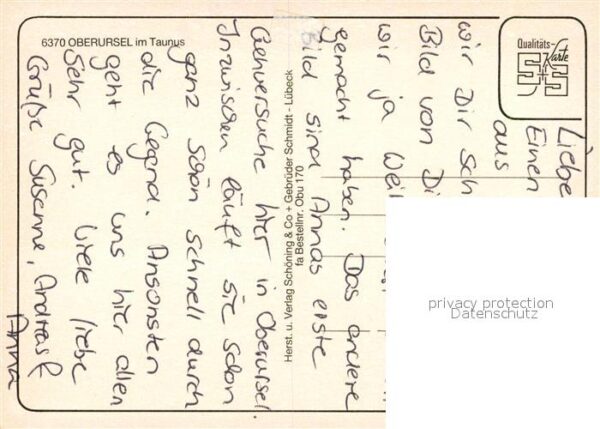 6370 OBERURSEL im Taunus
Qualitäts-
Karte
S+S
Herst. u. Verlag Schöning & Co + Gebrüder Schmidt - Lübeck
fa Bestellnr. Obu 170
Liebe
Einen
aus
wir Dir Sch
Bild von Di
wir ja Wei
gemacht haben. Das andere
Bild sind Annas erste
Gehversuche hier in Oberursel.
Inzwischen läuft sie schon
ganz schön schnell durch
die Gegend. Ansonsten
geht es uns hier allen
sehr gut. Viele liebe
Grüße Susanne, Andreas &
Anna
privacy protection
Datenschutz